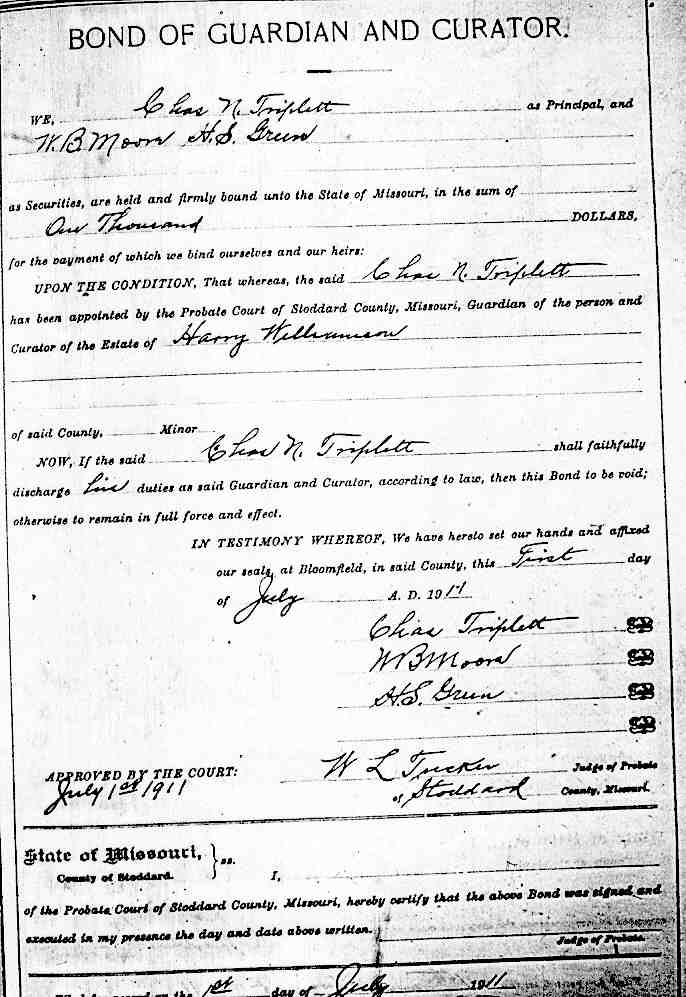 BOND OF GUARDIAN AND CURATOR.
WE, Chas N. Triplett as Principal, and
W. B. Moore H. S. Green
as Securities, are held and firmly bound unto the State of Missouri, in the sum of
One Thousand DOLLARS,
for the payment of which we bind ourselves and our heirs:
UPON THE CONDITION, That whereas, the said Chas N. Triplett
has been appointed by the Probate Court of Stoddard County, Missouri, Guardian of the person and
Curator of the Estate of Harry Williamson
of said County, Minor
NOW, If the said Chas N. Triplett shall faithfully
discharge his duties as said Guardian and Curator, according to law, then this Bond to be void;
otherwise to remain in full force and effect.
IN TESTIMONY WHEREOF, We have hereto set our hands and affixed
our seals, at Bloomfield, in said County, this First day
of July A. D. 1911
Chas Triplett
W B Moore
H. S. Green
APPROVED BY THE COURT: W L Tucker Judge of Probate
July 1st 1911 of Stoddard County, Missouri.
State of Missouri, } ss.
County of Stoddard. I,
of the Probate Court of Stoddard County, Missouri, hereby certify that the above Bond was signed and
executed in my presence the day and date above written.
Judge of Probate.
on the 1st day of July 1911